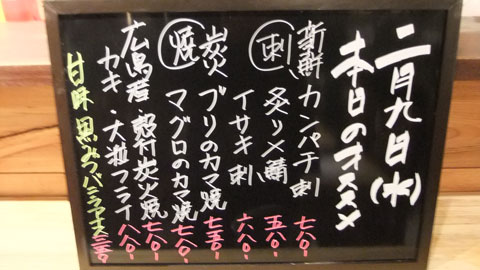 二月九日(水)
本日のオススメ
新鮮 カンパチ刺 七〇〇-
刺 炙り〆鯖 五八〇-
イサキ刺 六八〇-
炭火 ブリのカマ焼 七五〇-
焼 マグロのカマ焼 七八〇-
広島産 殻付炭火焼 七〇〇-
カキ・大粒フライ 八八〇-
甘味 黒みつバニラアイス 三五〇-